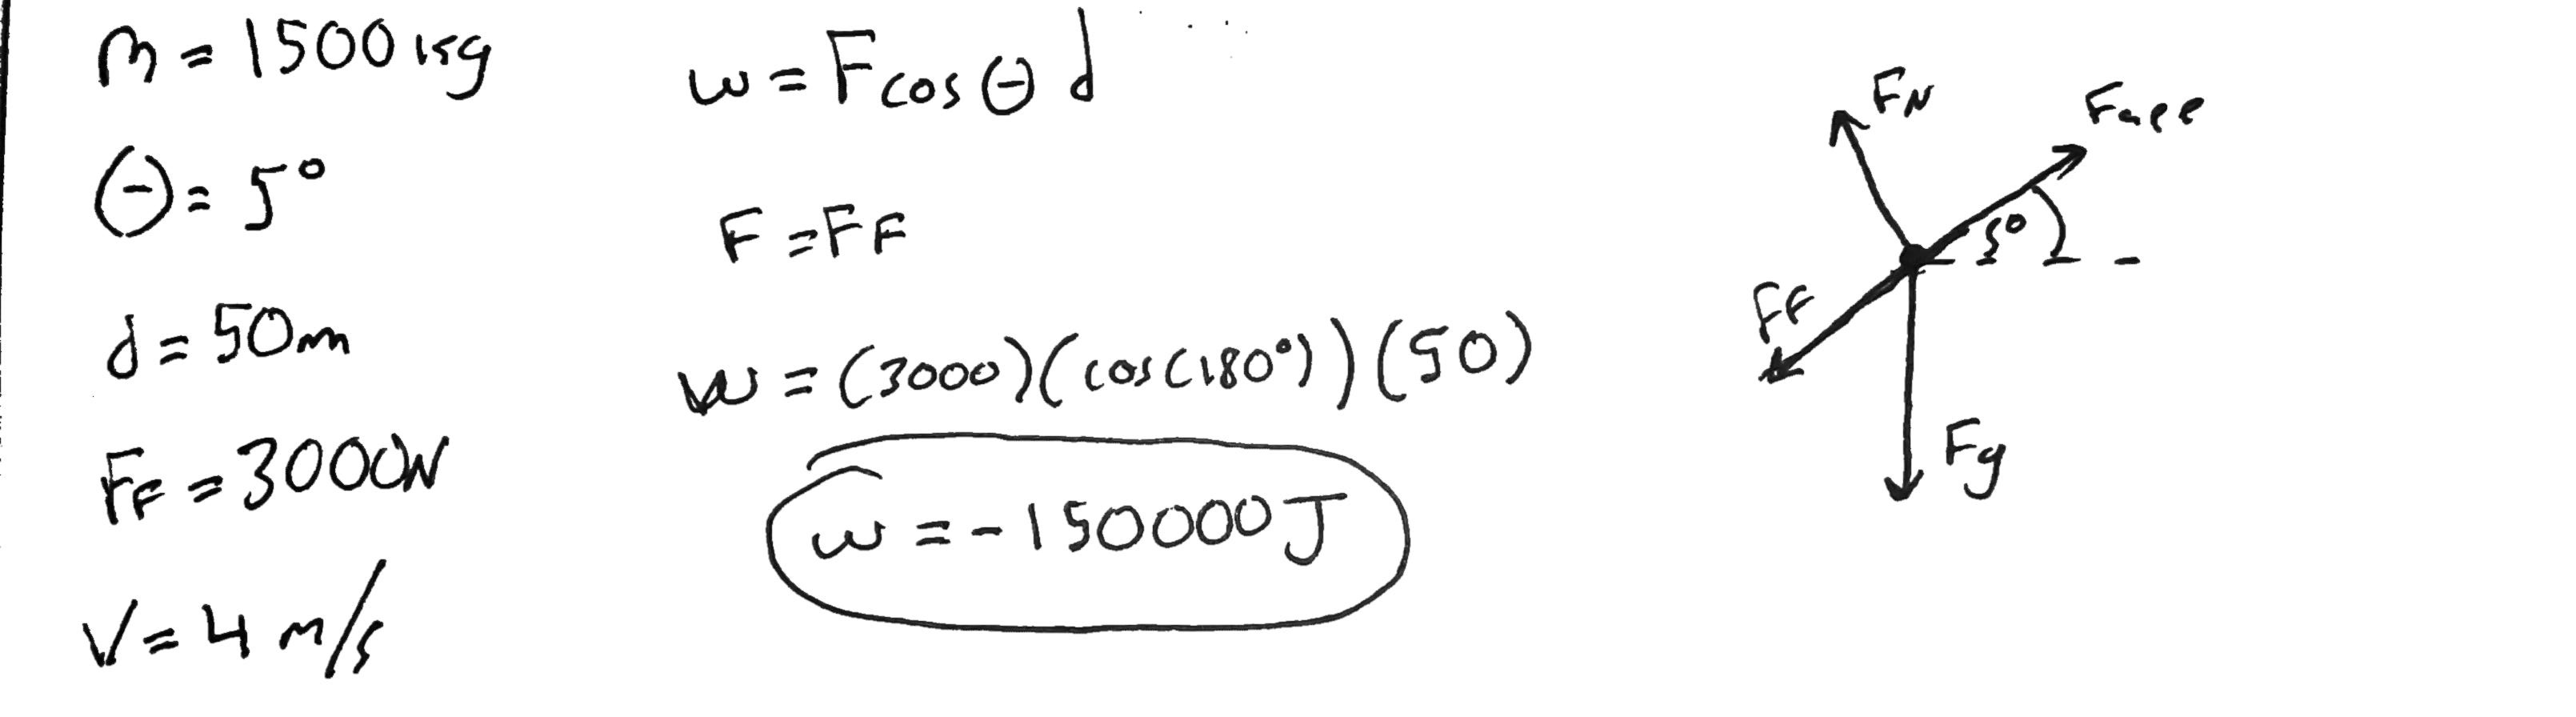 m = 1500 kg
θ = 5°
d = 50m
FF = 3000N
V = 4 m/s
w = F cos θ d
F = FF
W = (3000)(cos(180°))(50)
w = -150000 J
FN
FaPP
5°
FF
Fg